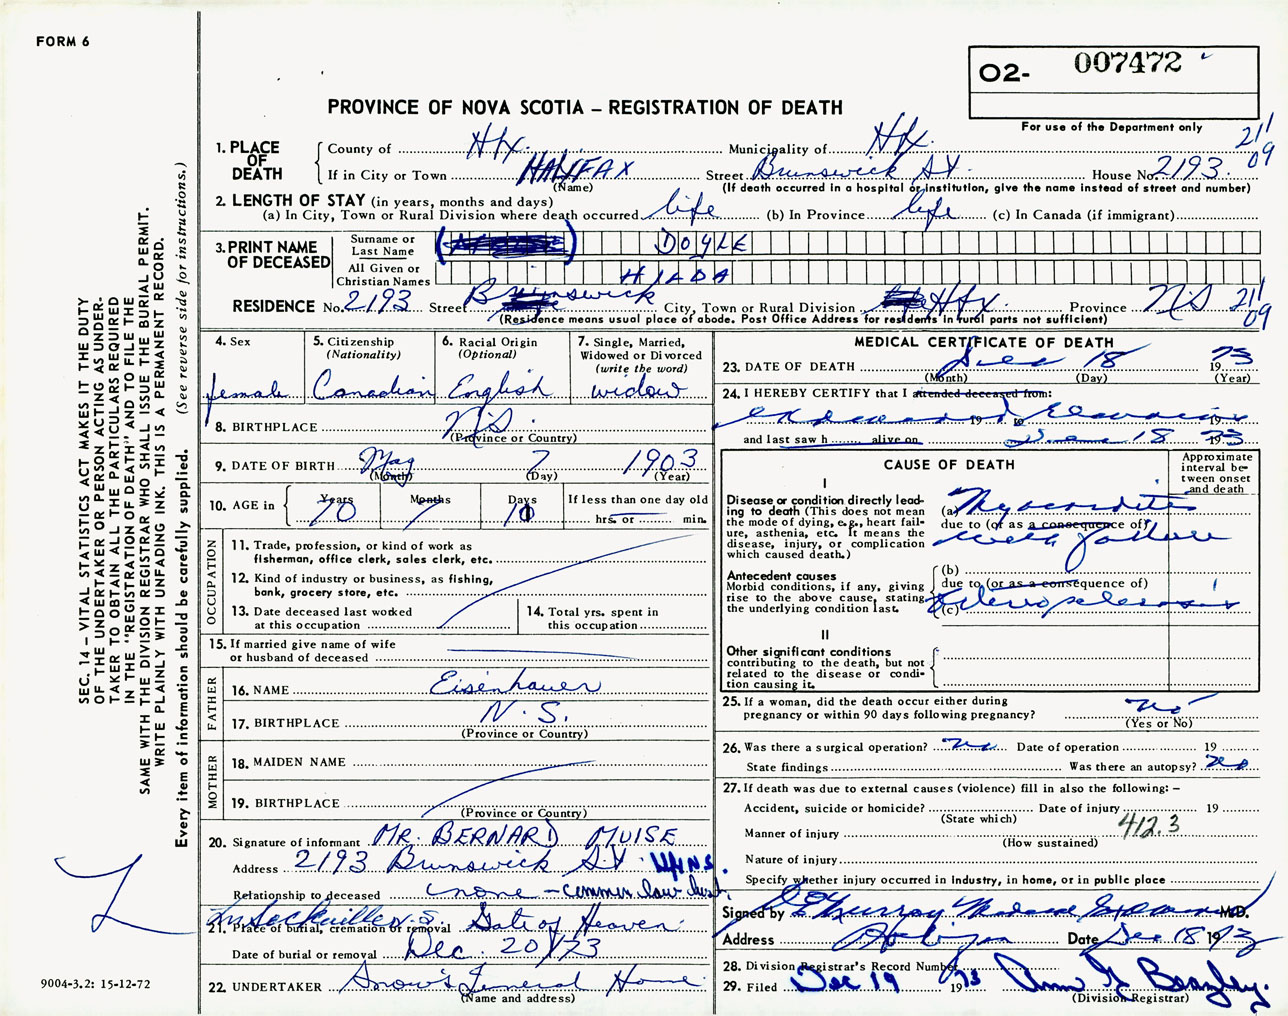 FORM 6
O2- 007472
PROVINCE OF NOVA SCOTIA – REGISTRATION OF DEATH
For use of the Department only
211
09
1. PLACE OF DEATH
County of Hfx. Municipality of Hfx.
If in City or Town HALIFAX Street Brunswick St. House No. 2193.
(Name) (If death occurred in a hospital or institution, give the name instead of street and number)
2. LENGTH OF STAY (in years, months and days)
(a) In City, Town or Rural Division where death occurred life (b) In Province life (c) In Canada (if immigrant)
3. PRINT NAME OF DECEASED
Surname or Last Name DOYLE
All Given or Christian Names HILDA
RESIDENCE No. 2193 Street Brunswick City, Town or Rural Division Hfx Province N.S 211
09
(Residence means usual place of abode. Post Office Address for residents in rural parts not sufficient)
4. Sex
female
5. Citizenship (Nationality)
Canadian
6. Racial Origin (Optional)
English
7. Single, Married, Widowed or Divorced (write the word)
widow
8. BIRTHPLACE N.S.
(Province or Country)
9. DATE OF BIRTH May 7 1903
(Month) (Day) (Year)
10. AGE in Years Months Days If less than one day old
70 7 hrs. or min.
OCCUPATION
11. Trade, profession, or kind of work as fisherman, office clerk, sales clerk, etc.
12. Kind of industry or business, as fishing, bank, grocery store, etc.
13. Date deceased last worked at this occupation
14. Total yrs. spent in this occupation
15. If married give name of wife or husband of deceased
FATHER
16. NAME Eisenhauer
17. BIRTHPLACE N.S.
(Province or Country)
MOTHER
18. MAIDEN NAME
19. BIRTHPLACE
(Province or Country)
20. Signature of informant MR. BERNARD MUISE
Address 2193 Brunswick St. Hfx N.S.
Relationship to deceased none – common law husb.
Lr Sackville N.S.
21. Place of burial, cremation or removal Gate of Heaven
Date of burial or removal Dec. 20/73
22. UNDERTAKER Snow's Funeral Home
(Name and address)
MEDICAL CERTIFICATE OF DEATH
23. DATE OF DEATH Dec 18 1973
(Month) (Day) (Year)
24. I HEREBY CERTIFY that I attended deceased from:
19 to 19
and last saw h alive on Dec 18 1973
CAUSE OF DEATH
Approximate interval between onset and death
I
Disease or condition directly leading to death (This does not mean the mode of dying, e.g., heart failure, asthenia, etc. It means the disease, injury, or complication which caused death.)
(a) Myocarditis
due to (or as a consequence of)
with failure
Antecedent causes
Morbid conditions, if any, giving rise to the above cause, stating the underlying condition last.
(b)
due to (or as a consequence of)
(c)
II
Other significant conditions
contributing to the death, but not related to the disease or condition causing it.
25. If a woman, did the death occur either during pregnancy or within 90 days following pregnancy? no
(Yes or No)
26. Was there a surgical operation? no Date of operation 19
State findings Was there an autopsy? no
27. If death was due to external causes (violence) fill in also the following: –
Accident, suicide or homicide? Date of injury 19
(State which)
412.3
Manner of injury
(How sustained)
Nature of injury
Specify whether injury occurred in industry, in home, or in public place
Signed by Murray Medical Examiner M.D.
Address Date Dec 18 1973
28. Division Registrar's Record Number
29. Filed Dec 19 1973
(Division Registrar)
SEC. 14 – VITAL STATISTICS ACT MAKES IT THE DUTY
OF THE UNDERTAKER OR PERSON ACTING AS UNDER-
TAKER TO OBTAIN ALL THE PARTICULARS REQUIRED
IN THE "REGISTRATION OF DEATH" AND TO FILE THE
SAME WITH THE DIVISION REGISTRAR WHO SHALL ISSUE THE BURIAL PERMIT.
WRITE PLAINLY WITH UNFADING INK. THIS IS A PERMANENT RECORD.
Every item of information should be carefully supplied. (See reverse side for instructions.)
9004-3.2: 15-12-72